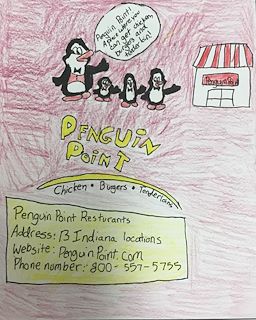 Penguin Point!
A place where you
can get chicken,
burgers and
tenderloin!
Penguin Point
PENGUIN
POINT
Chicken • Burgers • Tenderloins
Penguin Point Resturants
Address: 13 Indiana locations
Website: PenguinPoint.com
Phone number: 800-557-5755